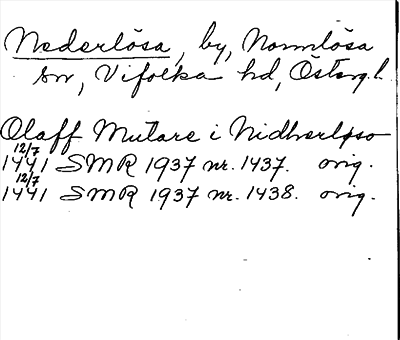 Nederlösa, by, Normlösa
sn, Vifolka hd, Östergl.
Olaff Mutare i Nidherløso
12/7
1441 SMR 1937 nr. 1437. orig.
12/7
1441 SMR 1937 nr. 1438. orig.